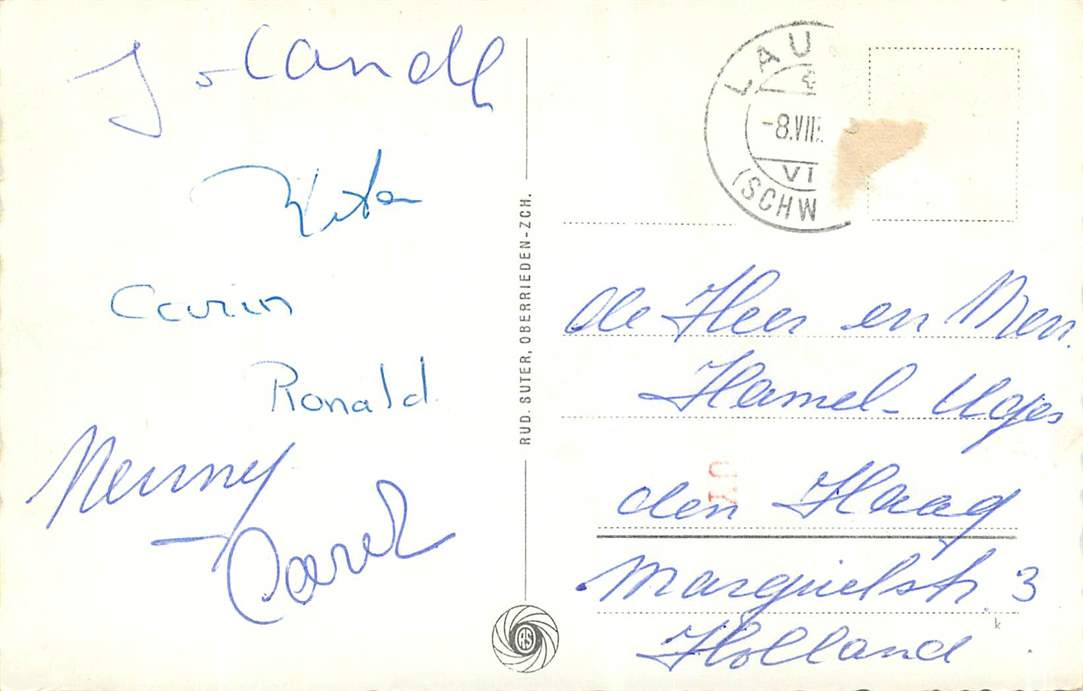 Jolandl
Rita
Carin
Ronald
Menny
Carel
RUD. SUTER, OBERRIEDEN-ZCH.
RS
LAU
-8.VIII.
VI
(SCHW
de Heer en Mevr.
Hamel-
den Haag
3
Holland
k